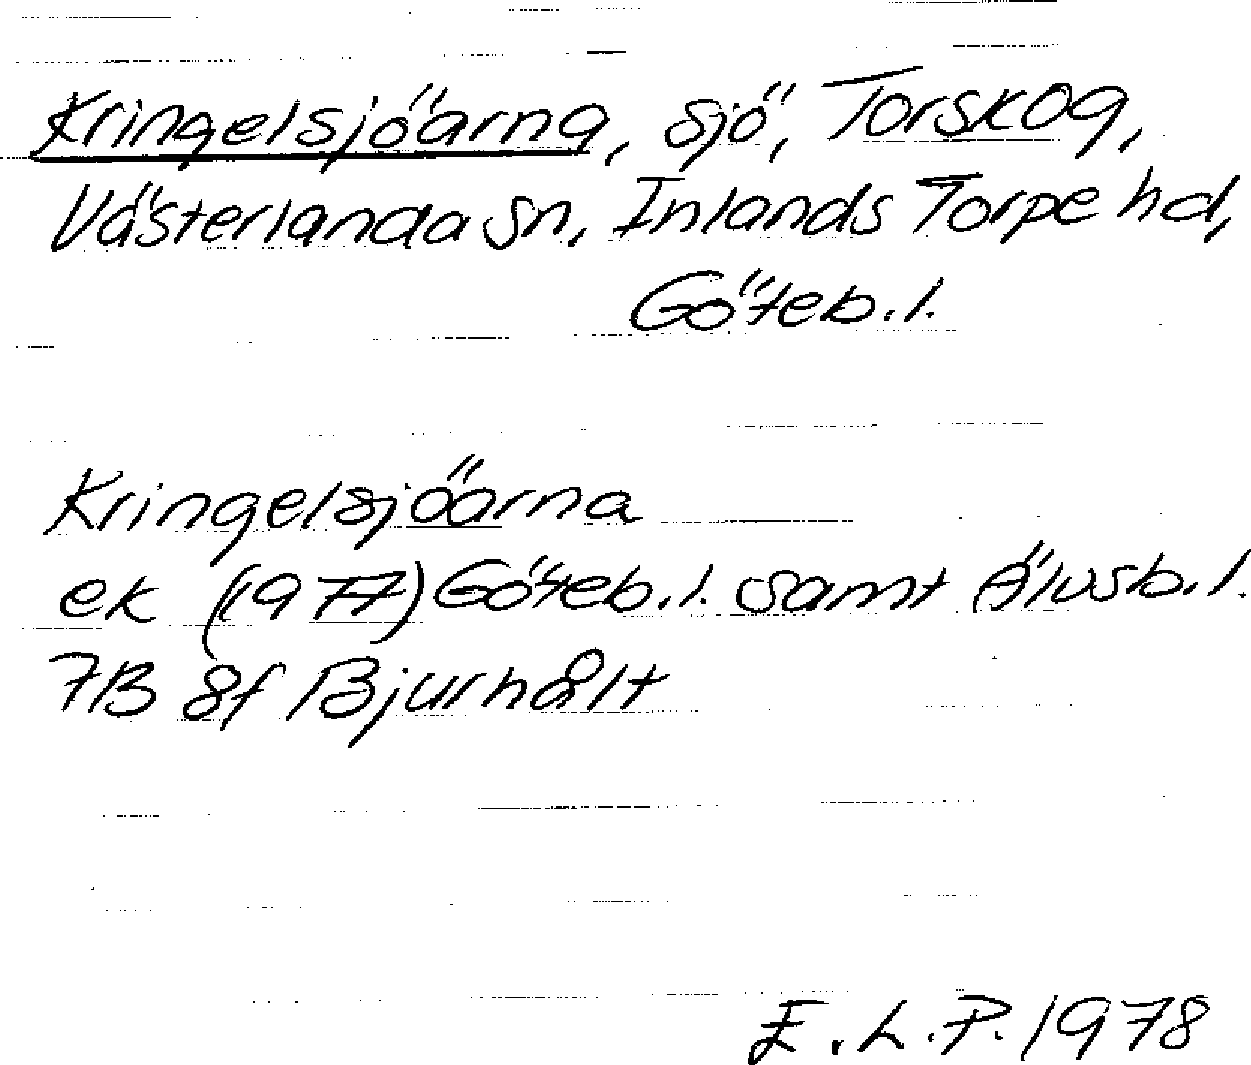 Kringelsjöarna, sjö, Torskog,
Västerlanda sn, Inlands Torpe hd,
Göteb. l.
Kringelsjöarna
ek (1977) Göteb. l. samt Älvsb. l.
7B 8f Bjurhålt
E. L. P. 1978